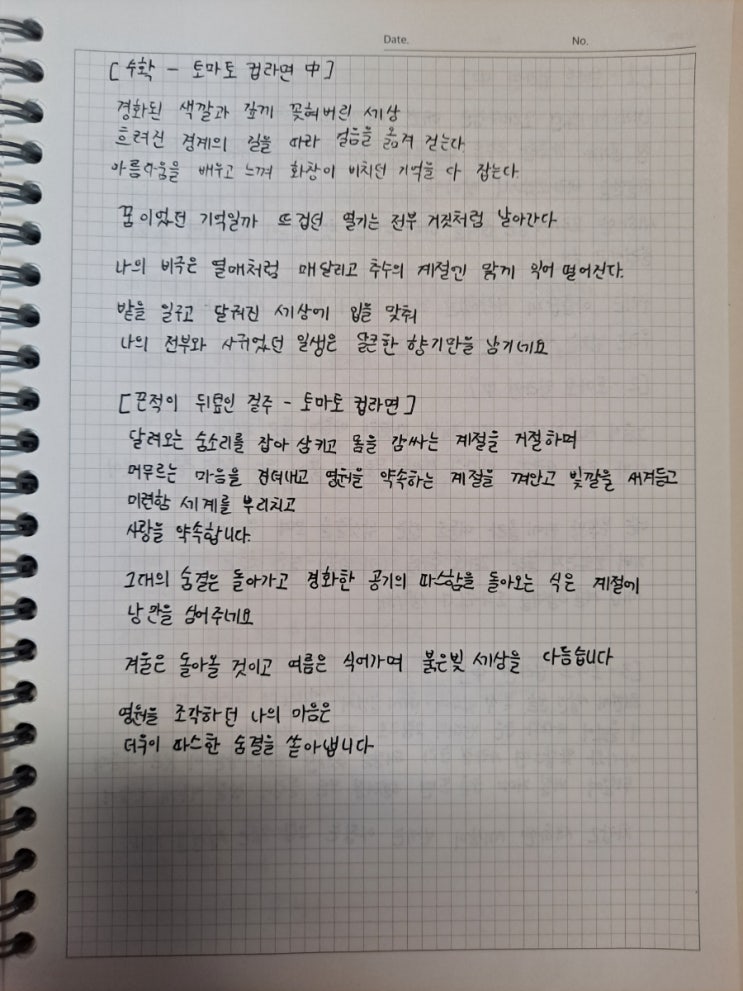 Date.
No.
[수확 - 토마토 컵라면 中]
경화된 색깔과 깊게 꽂혀버린 세상
흐려진 경계의 길을 따라 걸음을 옮겨 걷는다.
아름다움을 배우고 느껴 화창이 비치던 기억을 다 잡는다.
꿈이었던 기억일까 뜨겁던 열기는 전부 거짓처럼 날아간다
나의 비극은 열매처럼 매달리고 추수의 계절엔 맑게 익어 떨어진다.
밭을 일구고 달궈진 세상에 입을 맞춰
나의 전부와 사귀었던 일생은 달큰한 향기만을 남기네요
[끈적이 뒤덮인 걸주 - 토마토 컵라면]
달려오는 숨소리를 잡아 삼키고 몸을 감싸는 계절을 거절하며
머무르는 마음을 견뎌내고 영원을 약속하는 계절을 껴안고 빛깔을 새겨들고
미련함 세계를 뿌리치고
사랑을 약속합니다.
그대의 숨결은 돌아가고 경화한 공기의 따스함을 돌아오는 식은 계절에
낭만을 심어주네요
겨울은 돌아올 것이고 여름은 식어가며 붉은빛 세상을 다듬습니다
영원을 조각하던 나의 마음은
더욱이 따스한 숨결을 쏟아냅니다